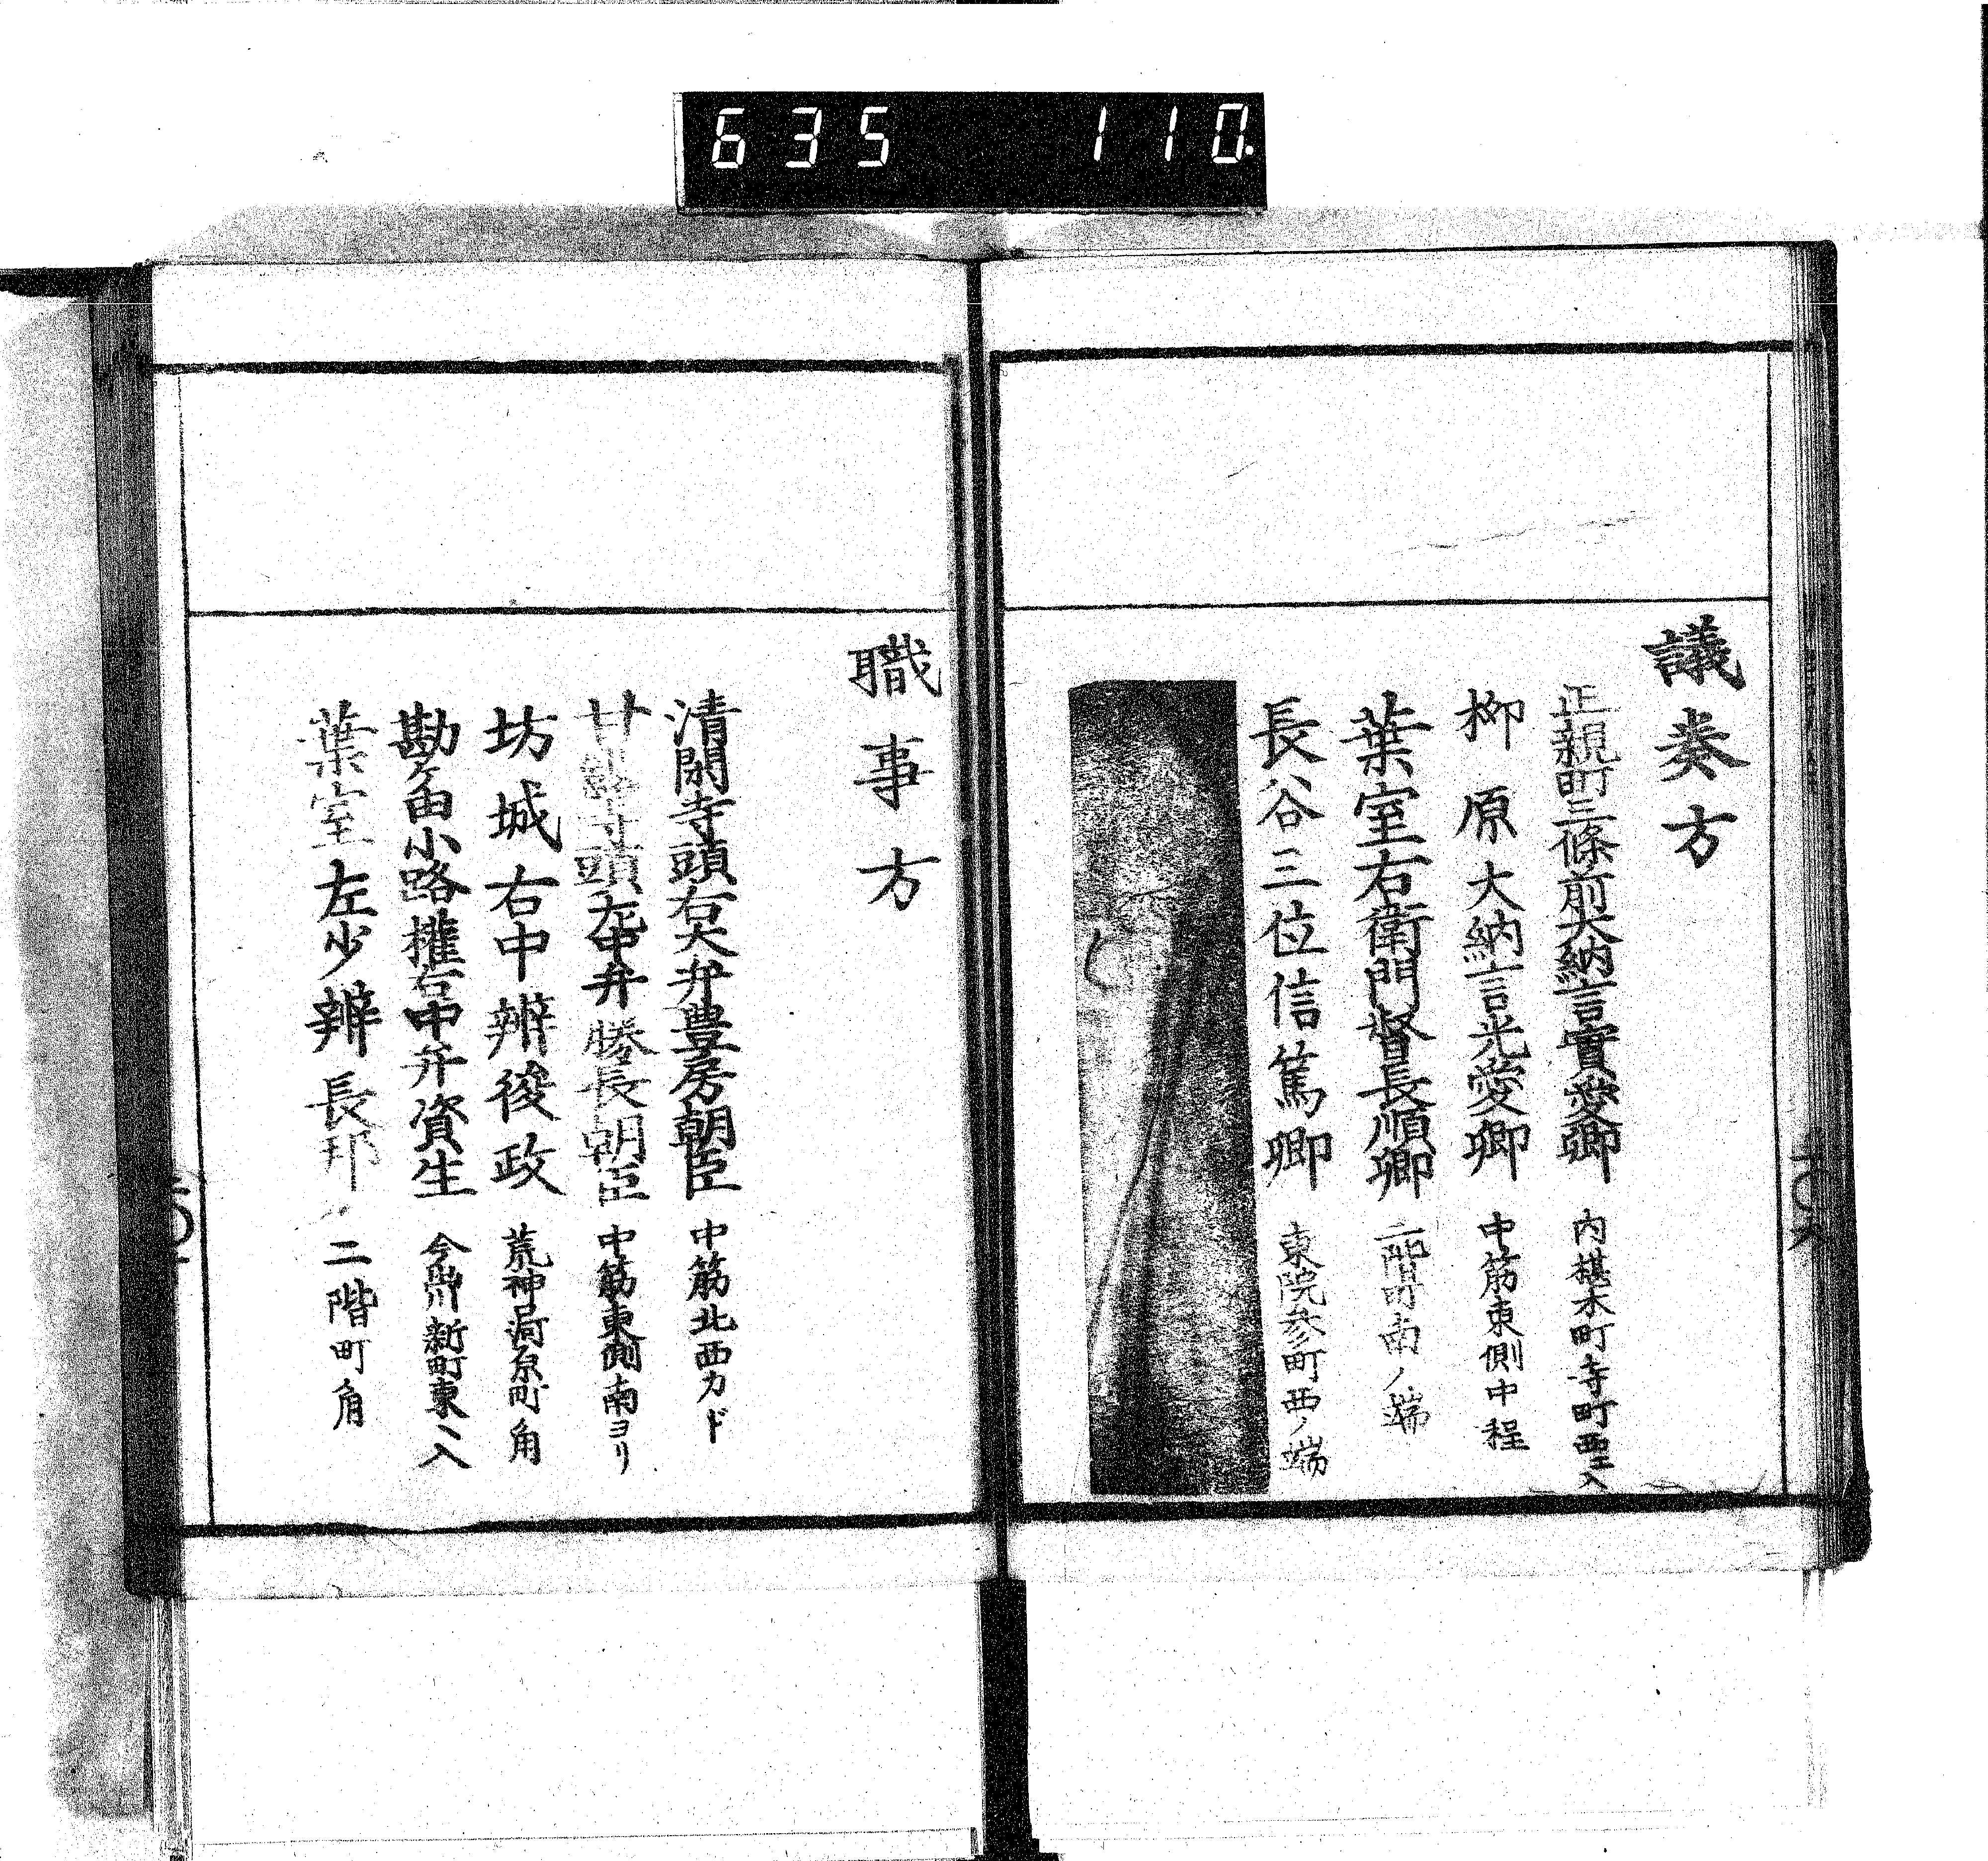 635 110.
議奏方
正親町三條前大納言實愛卿 内椹木町寺町西エ入
柳原大納言光愛卿 中筋東側中程
葉室右衛門督長順卿 二階町南ノ端
長谷三位信篤卿 東院参町西ノ端
職事方
清閑寺頭右大弁豊房朝臣 中筋北西カド
甘露寺頭左中弁勝長朝臣 中筋東側南ヨリ
坊城右中辨俊政 荒神河原町角
勘ケ由小路権右中弁資生 今出川新町東ヘ入
葉室左少辨長邦 二階町角